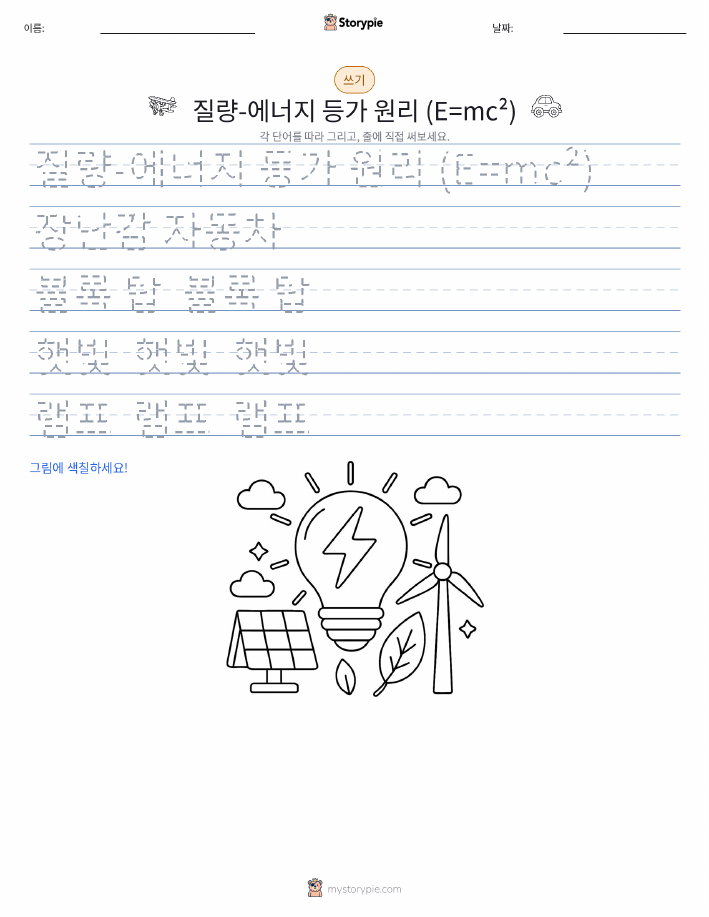 이름:
Storypie
날짜:
쓰기
질량-에너지 등가 원리 (E=mc²)
각 단어를 따라 그리고, 줄에 직접 써보세요.
질량-에너지 등가 원리 (E=mc²)
장난감 자동차
블록 탑 블록 탑
햇빛 햇빛 햇빛
램프 램프 램프
그림에 색칠하세요!
mystorypie.com